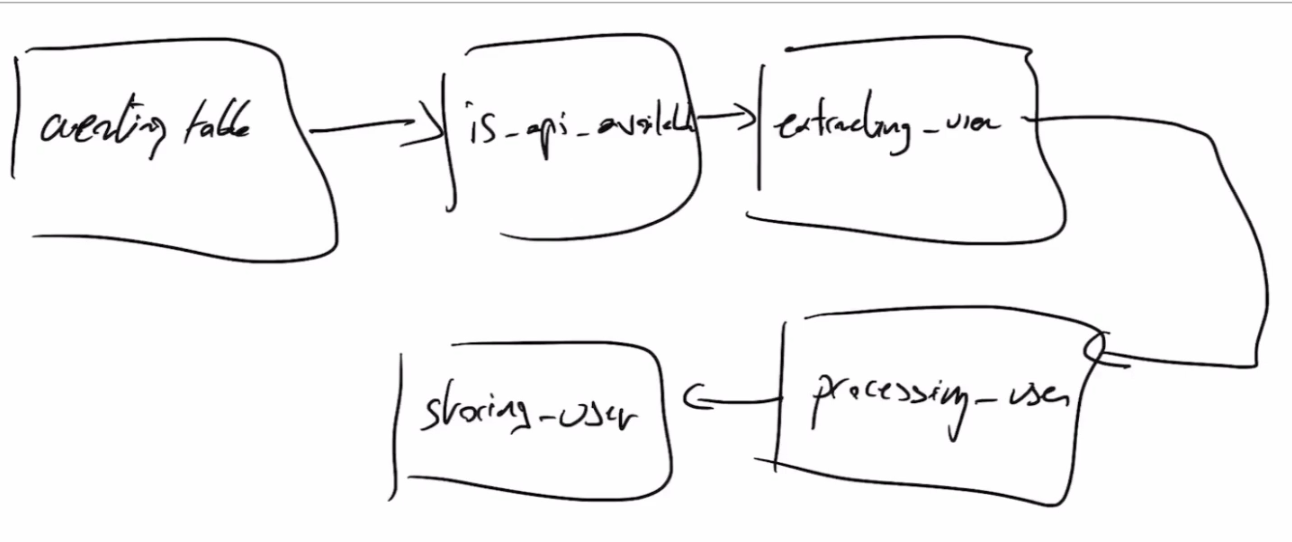 creating table
is_api_available
extracting_user
processing_user
storing_user